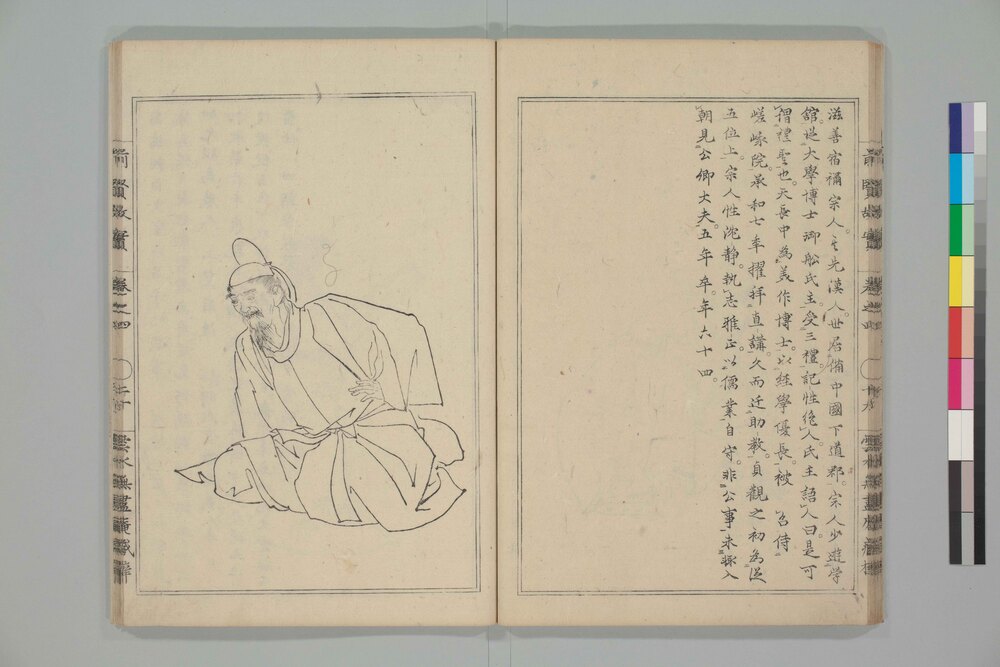 滋善宿禰宗人其先漢人世居備中國下道郡宗人少遊学
館從大學博士御船氏主受三禮記性絶人氏主語人曰是可
謂禮聖也天長中為美作博士以経學優長被 召侍
嵯峨院承和七年擢拜直講久而迁助教貞觀之初為從
五位上宗人性沈静執志雅正以儒業自守非公事未輙入
朝見公卿大夫五年卒年六十四
前賢故實 卷之四
雲水無盡庵藏